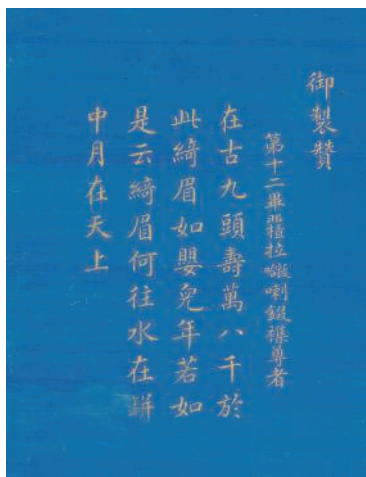 御製贊
第十二畢那楂拉哈喇錣襍尊者
在古九頭壽萬八千於
此綺眉如嬰兒年若如
是云綺眉何往水在缾
中月在天上